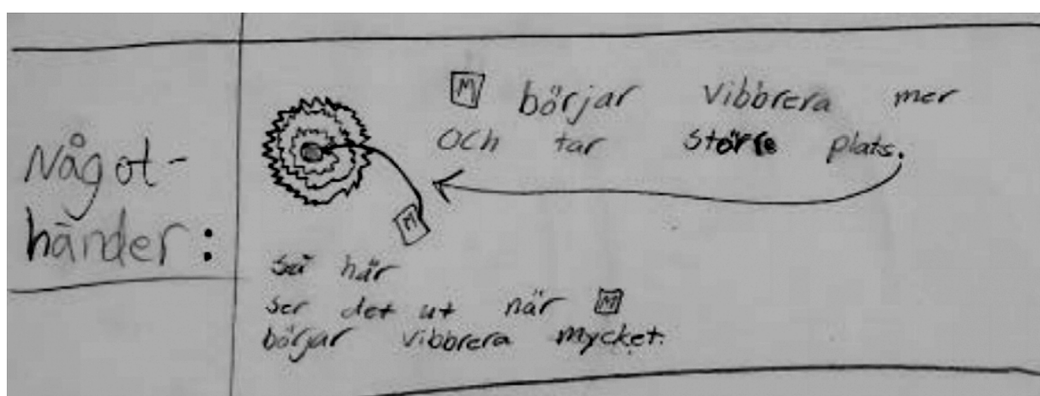 Något-
händer:
M börjar vibbrera mer
och tar större plats.
M
Så här
ser det ut när M
börjar vibbrera mycket.